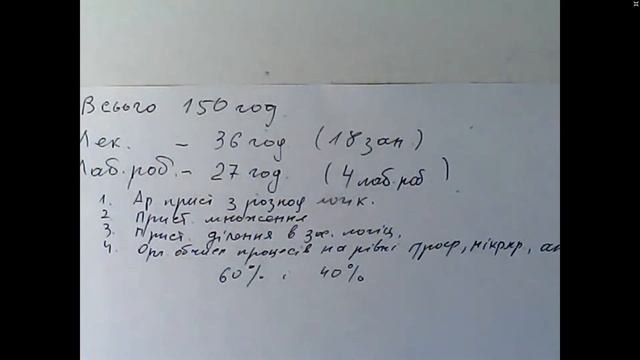 Всього 150 год.
Лек. – 36 год (18 зан.)
Лаб.роб. – 27 год. (4 лаб.роб)
1. Ар. прист з розпод логік.
2 Прист. множення
3. Прист. ділення в логіц.
4. Орг. обчисл процесів на рівні
60% і 40%